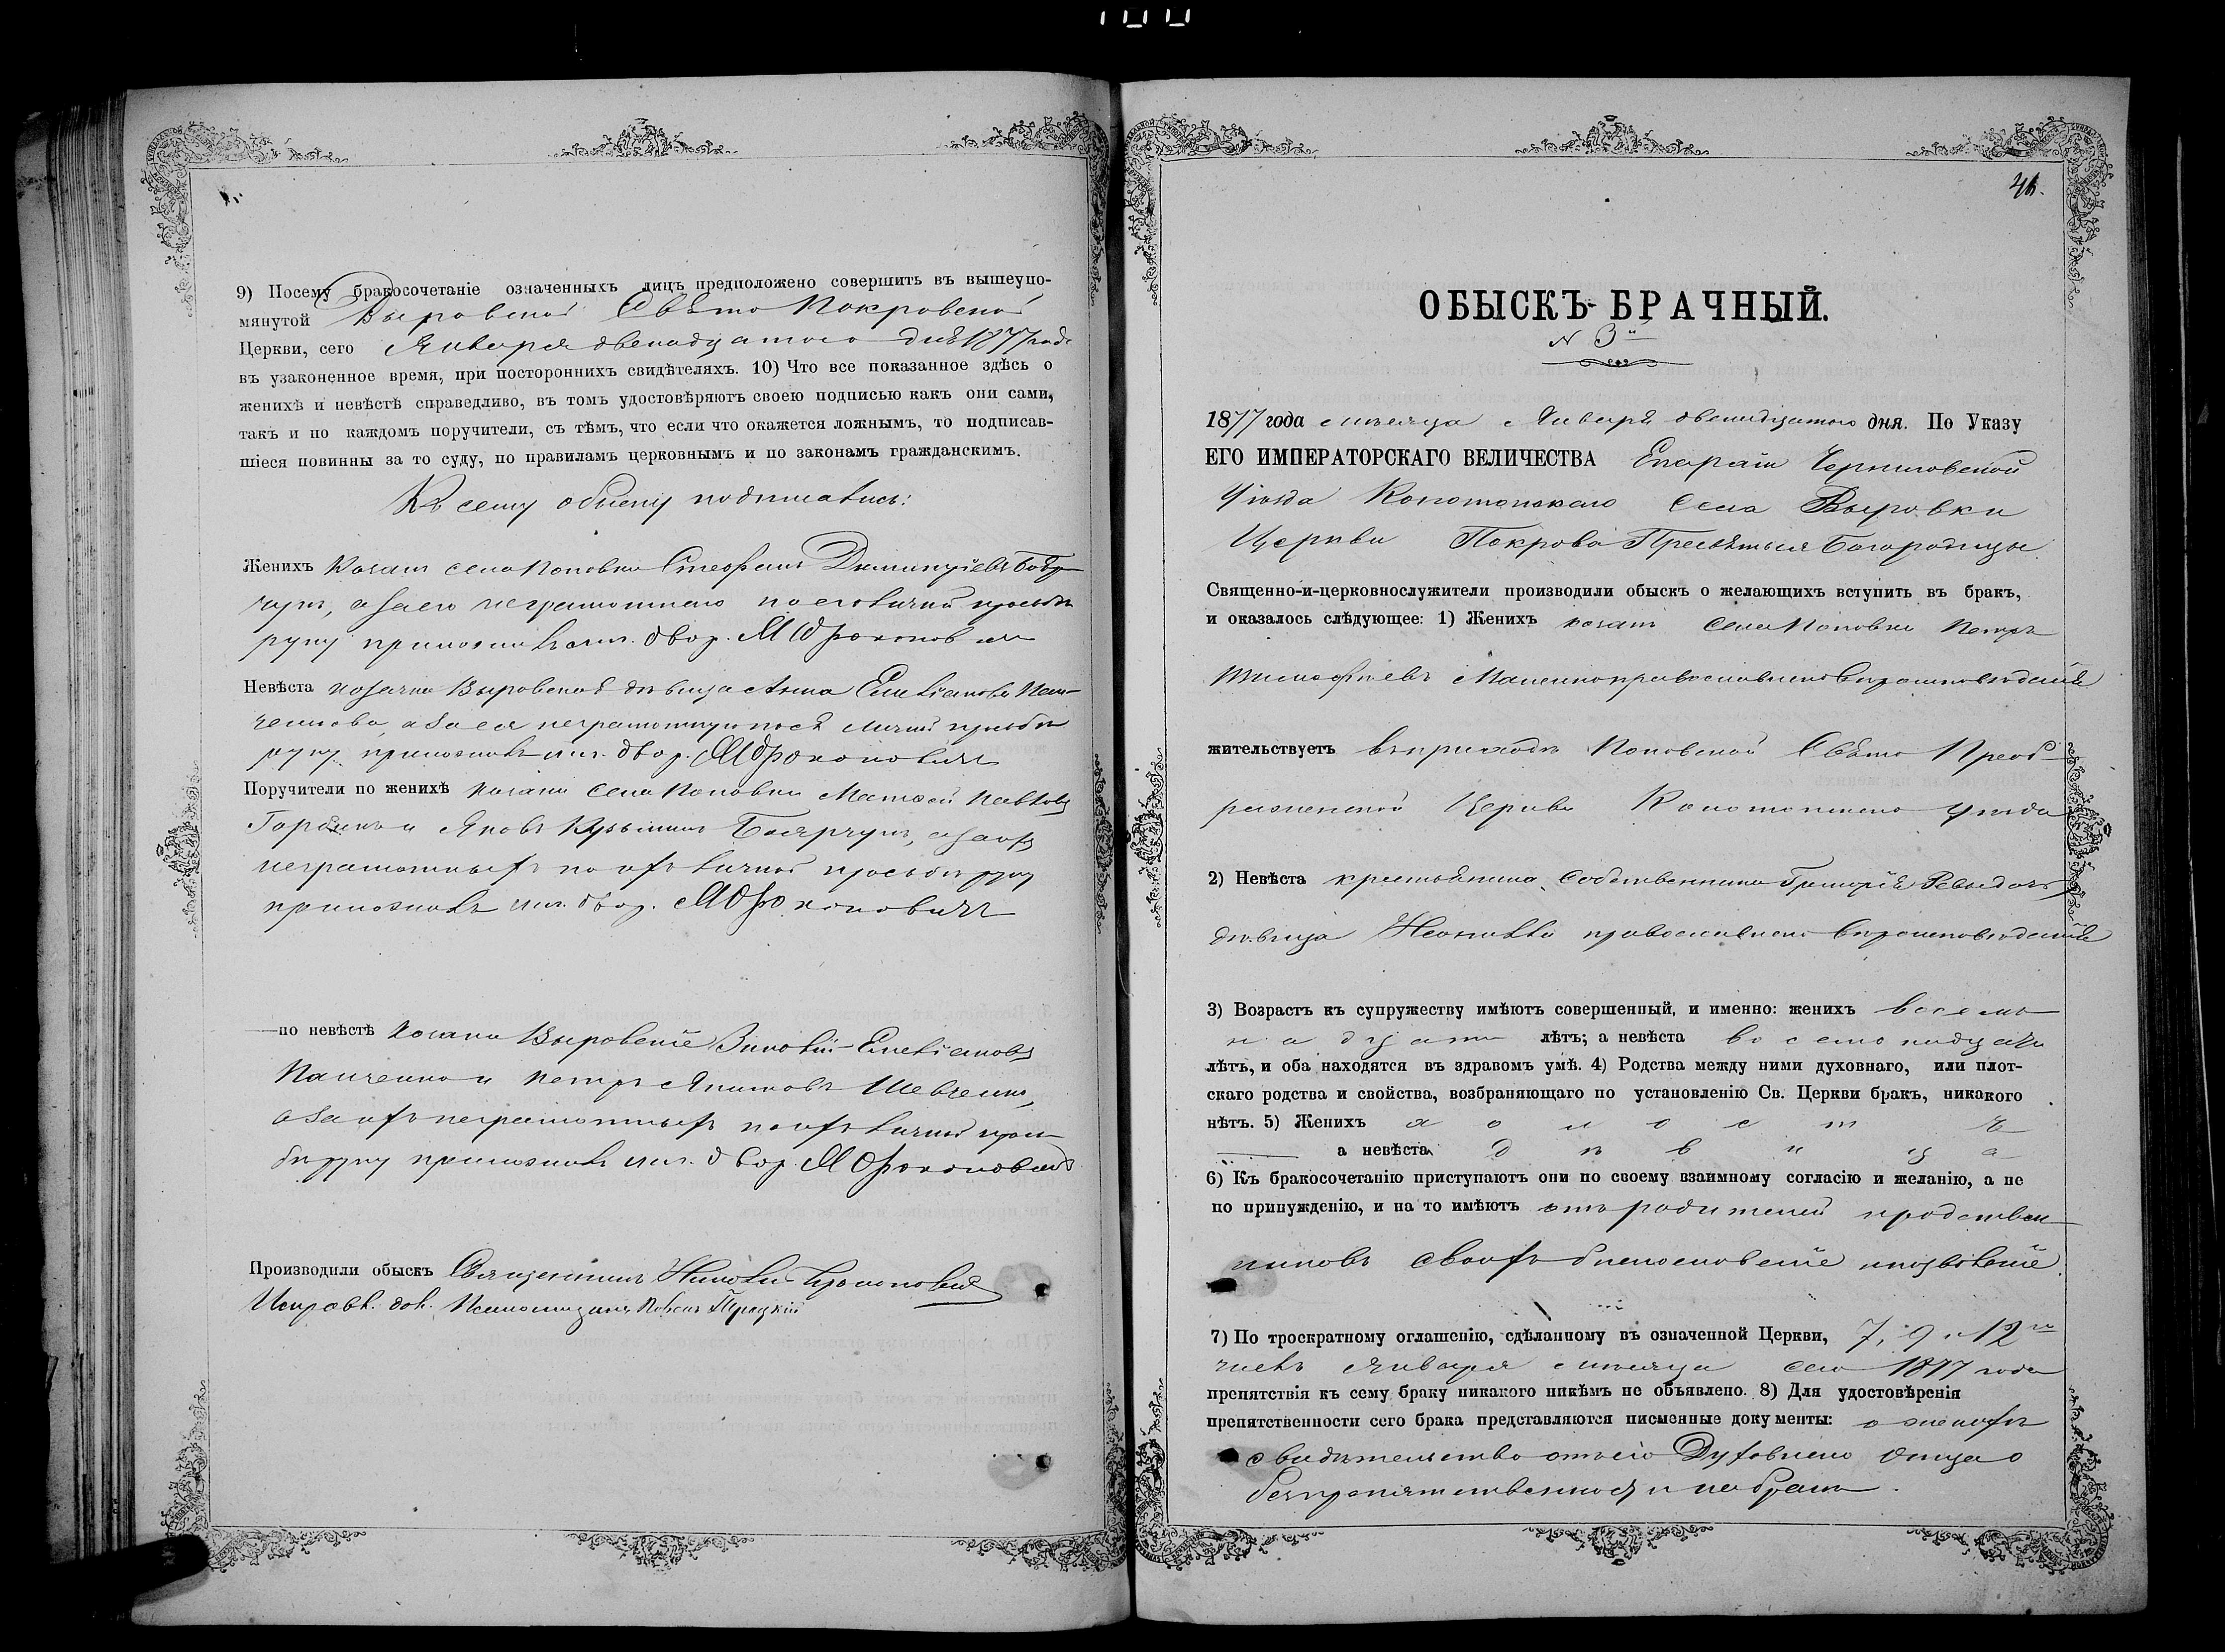 9) Посему бракосочетаніе означенныхъ лицъ предположено совершить въ вышеупо-
мянутой Выровской Свѣто Покровской
Церкви, сего Января двенадцатого дня 1877 года
въ узаконенное время, при постороннихъ свидѣтеляхъ. 10) Что все показанное здѣсь о
женихѣ и невѣстѣ справедливо, въ томъ удостовѣряютъ своею подписью какъ они сами,
такъ и по каждомъ поручители, съ тѣмъ, что если что окажется ложнымъ, то подписав-
шіеся повинны за то суду, по правиламъ церковнымъ и по законамъ гражданскимъ.
Къ сему обыску подписались:
Женихъ Козакъ села Поповки Стефанъ Димитріевъ
а за его неграмотнаго по его личной просьбѣ
руку приложилъ двор.
Невѣста козачка Выровская дѣвица Анна Емельянова Пан-
ченкова, а за ея неграмотную по ея личной просьбѣ
руку приложилъ двор.
Поручители по женихѣ козаки села Поповки Матвей Павловъ
и Яковъ Кузьминъ а за ихъ
неграмотныхъ по ихъ личной просьбѣ руку
приложилъ двор.
по невѣстѣ Козаки Выровскіе Зиновій Емельяновъ
Панченко и Петръ Акимовъ Шевченко,
а за ихъ неграмотныхъ по ихъ личной прось-
бѣ руку приложилъ двор.
Производили обыскъ Священникъ
Исправл. дол. Псаломщика Павелъ Троцкій
41.
ОБЫСКЪ БРАЧНЫЙ.
N 3й
1877 года мѣсяца Января двенадцатого дня. По Указу
ЕГО ИМПЕРАТОРСКАГО ВЕЛИЧЕСТВА Епархіи Черниговской
Уѣзда Конотопскаго Села Выровки
Церкви Покрова Пресвятыя Богородицы
Священно-и-церковнослужители производили обыскъ о желающихъ вступить въ бракъ,
и оказалось слѣдующее: 1) Женихъ козакъ Села Поповки Петръ
Тимофеевъ православнаго вѣроисповѣданія
жительствуетъ въ приходѣ Поповской Свѣто Преоб-
раженской Церкви Конотопскаго уѣзда
2) Невѣста крестьянина собственника Григорія
дѣвица православнаго вѣроисповѣданія
3) Возрастъ къ супружеству имѣютъ совершенный, и именно: женихъ восем-
надцать лѣтъ; а невѣста восемнадцать
лѣтъ, и оба находятся въ здравомъ умѣ. 4) Родства между ними духовнаго, или плот-
скаго родства и свойства, возбраняющаго по установленію Св. Церкви бракъ, никакого
нѣтъ. 5) Женихъ холостъ
а невѣста дѣвица
6) Къ бракосочетанію приступаютъ они по своему взаимному согласію и желанію, а не
по принужденію, и на то имѣютъ отъ родителей и родствен-
никовъ своихъ благословеніе и позволеніе.
7) По троекратному оглашенію, сдѣланному въ означенной Церкви, 7, 9 и 12го
числъ Января мѣсяца сего 1877 года
препятствія къ сему браку никакого никѣмъ не объявлено. 8) Для удостовѣренія
препятственности сего брака представляются писменные документы: о женихѣ
свидѣтельство отъ его Духовнаго Отца о
безпрепятственности на бракъ.